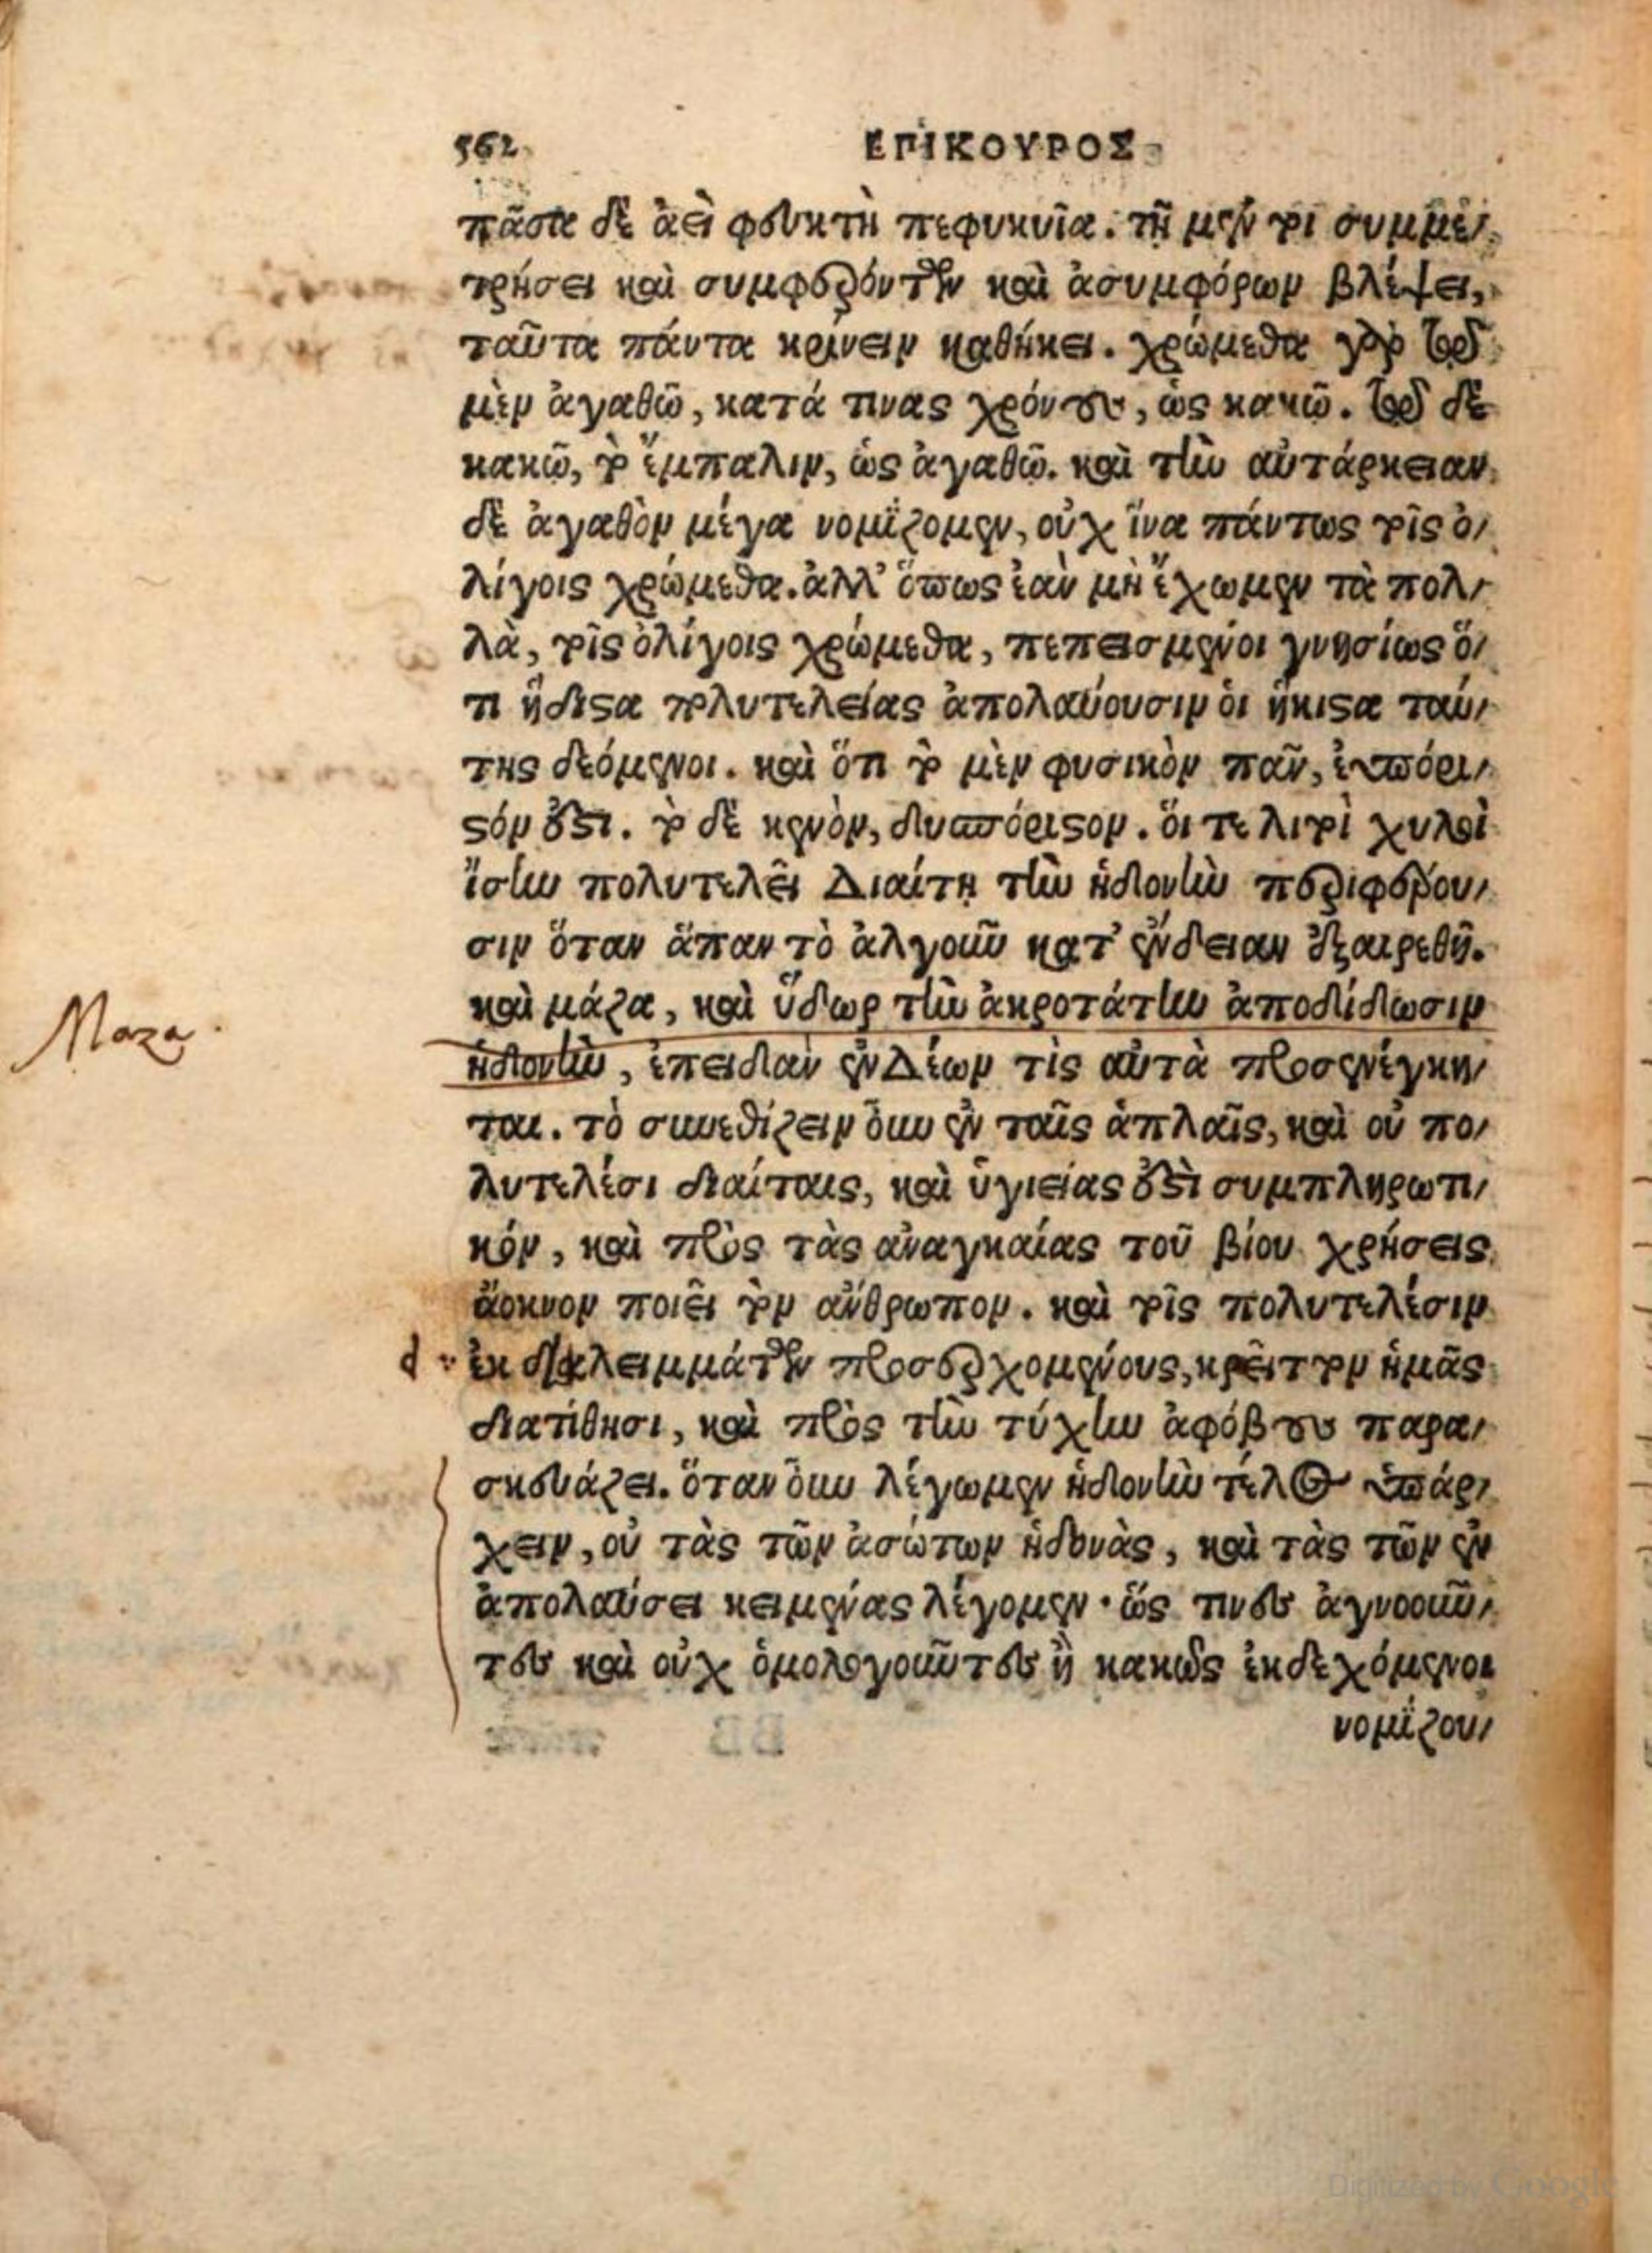 562 ΕΠΙΚΟΥΡΟΣ
πᾶσα δὲ ἀεὶ φευκτὴ πεφυκυῖα. τῇ μέν τοι συμμέ-
τρήσει καὶ συμφερόντων καὶ ἀσυμφόρων βλέψει,
ταῦτα πάντα κρίνειν καθήκει. χρώμεθα γὰρ τῷ
μὲν ἀγαθῷ, κατά τινας χρόνους, ὡς κακῷ. τῷ δὲ
κακῷ, τὸ ἔμπαλιν, ὡς ἀγαθῷ. καὶ τὴν αὐτάρκειαν
δὲ ἀγαθὸν μέγα νομίζομεν, οὐχ ἵνα πάντως τοῖς ὀ-
λίγοις χρώμεθα. ἀλλ' ὅπως ἐὰν μὴ ἔχωμεν τὰ πολ-
λὰ, τοῖς ὀλίγοις χρώμεθα, πεπεισμένοι γνησίως ὅ-
τι ἥδιστα πολυτελείας ἀπολαύουσιν ὁι ἥκιστα ταύ-
της δεόμενοι. καὶ ὅτι τὸ μὲν φυσικὸν πᾶν, ἐυπόρι-
στόν ἐστι. τὸ δὲ κενὸν, δυσπόριστον. ὅι τε λιτοὶ χυλοὶ
ἴσην πολυτελεῖ Διαίτῃ τὴν ἡδονὴν περιφέρου-
σιν ὅταν ἅπαν τὸ ἀλγοῦν κατ' ἔνδειαν ἐξαιρεθῇ.
καὶ μάζα, καὶ ὕδωρ τὴν ἀκροτάτην ἀποδίδωσιν
ἡδονὴν, ἐπειδὰν ἐνΔέων τὶς αὐτὰ προσενέγκη-
Maza.
ται. τὸ συνεθίζειν ὂυν ἐν ταῖς ἁπλαῖς, καὶ οὐ πο-
λυτελέσι διαίταις, καὶ ὑγιείας ἐστὶ συμπληρωτι-
κόν, καὶ πρὸς τὰς ἀναγκαίας τοῦ βίου χρήσεις
ἄοκνον ποιεῖ τὸν ἄνθρωπον. καὶ τοῖς πολυτελέσιν
d ἐκ διαλειμμάτων προσερχομένους, κρεῖττον ἡμᾶς
διατίθησι, καὶ πρὸς τὴν τύχην ἀφόβους παρα-
σκευάζει. ὅταν ὂυν λέγωμεν ἡδονὴν τέλος ὑπάρ-
χειν, οὐ τὰς τῶν ἀσώτων ἡδονὰς, καὶ τὰς τῶν ἐν
ἀπολαύσει κειμένας λέγομεν· ὥς τινες ἀγνοοῦν-
τες καὶ οὐχ ὁμολογοῦντες ἢ κακῶς ἐκδεχόμενοι
νομίζου-
Digitized by Google